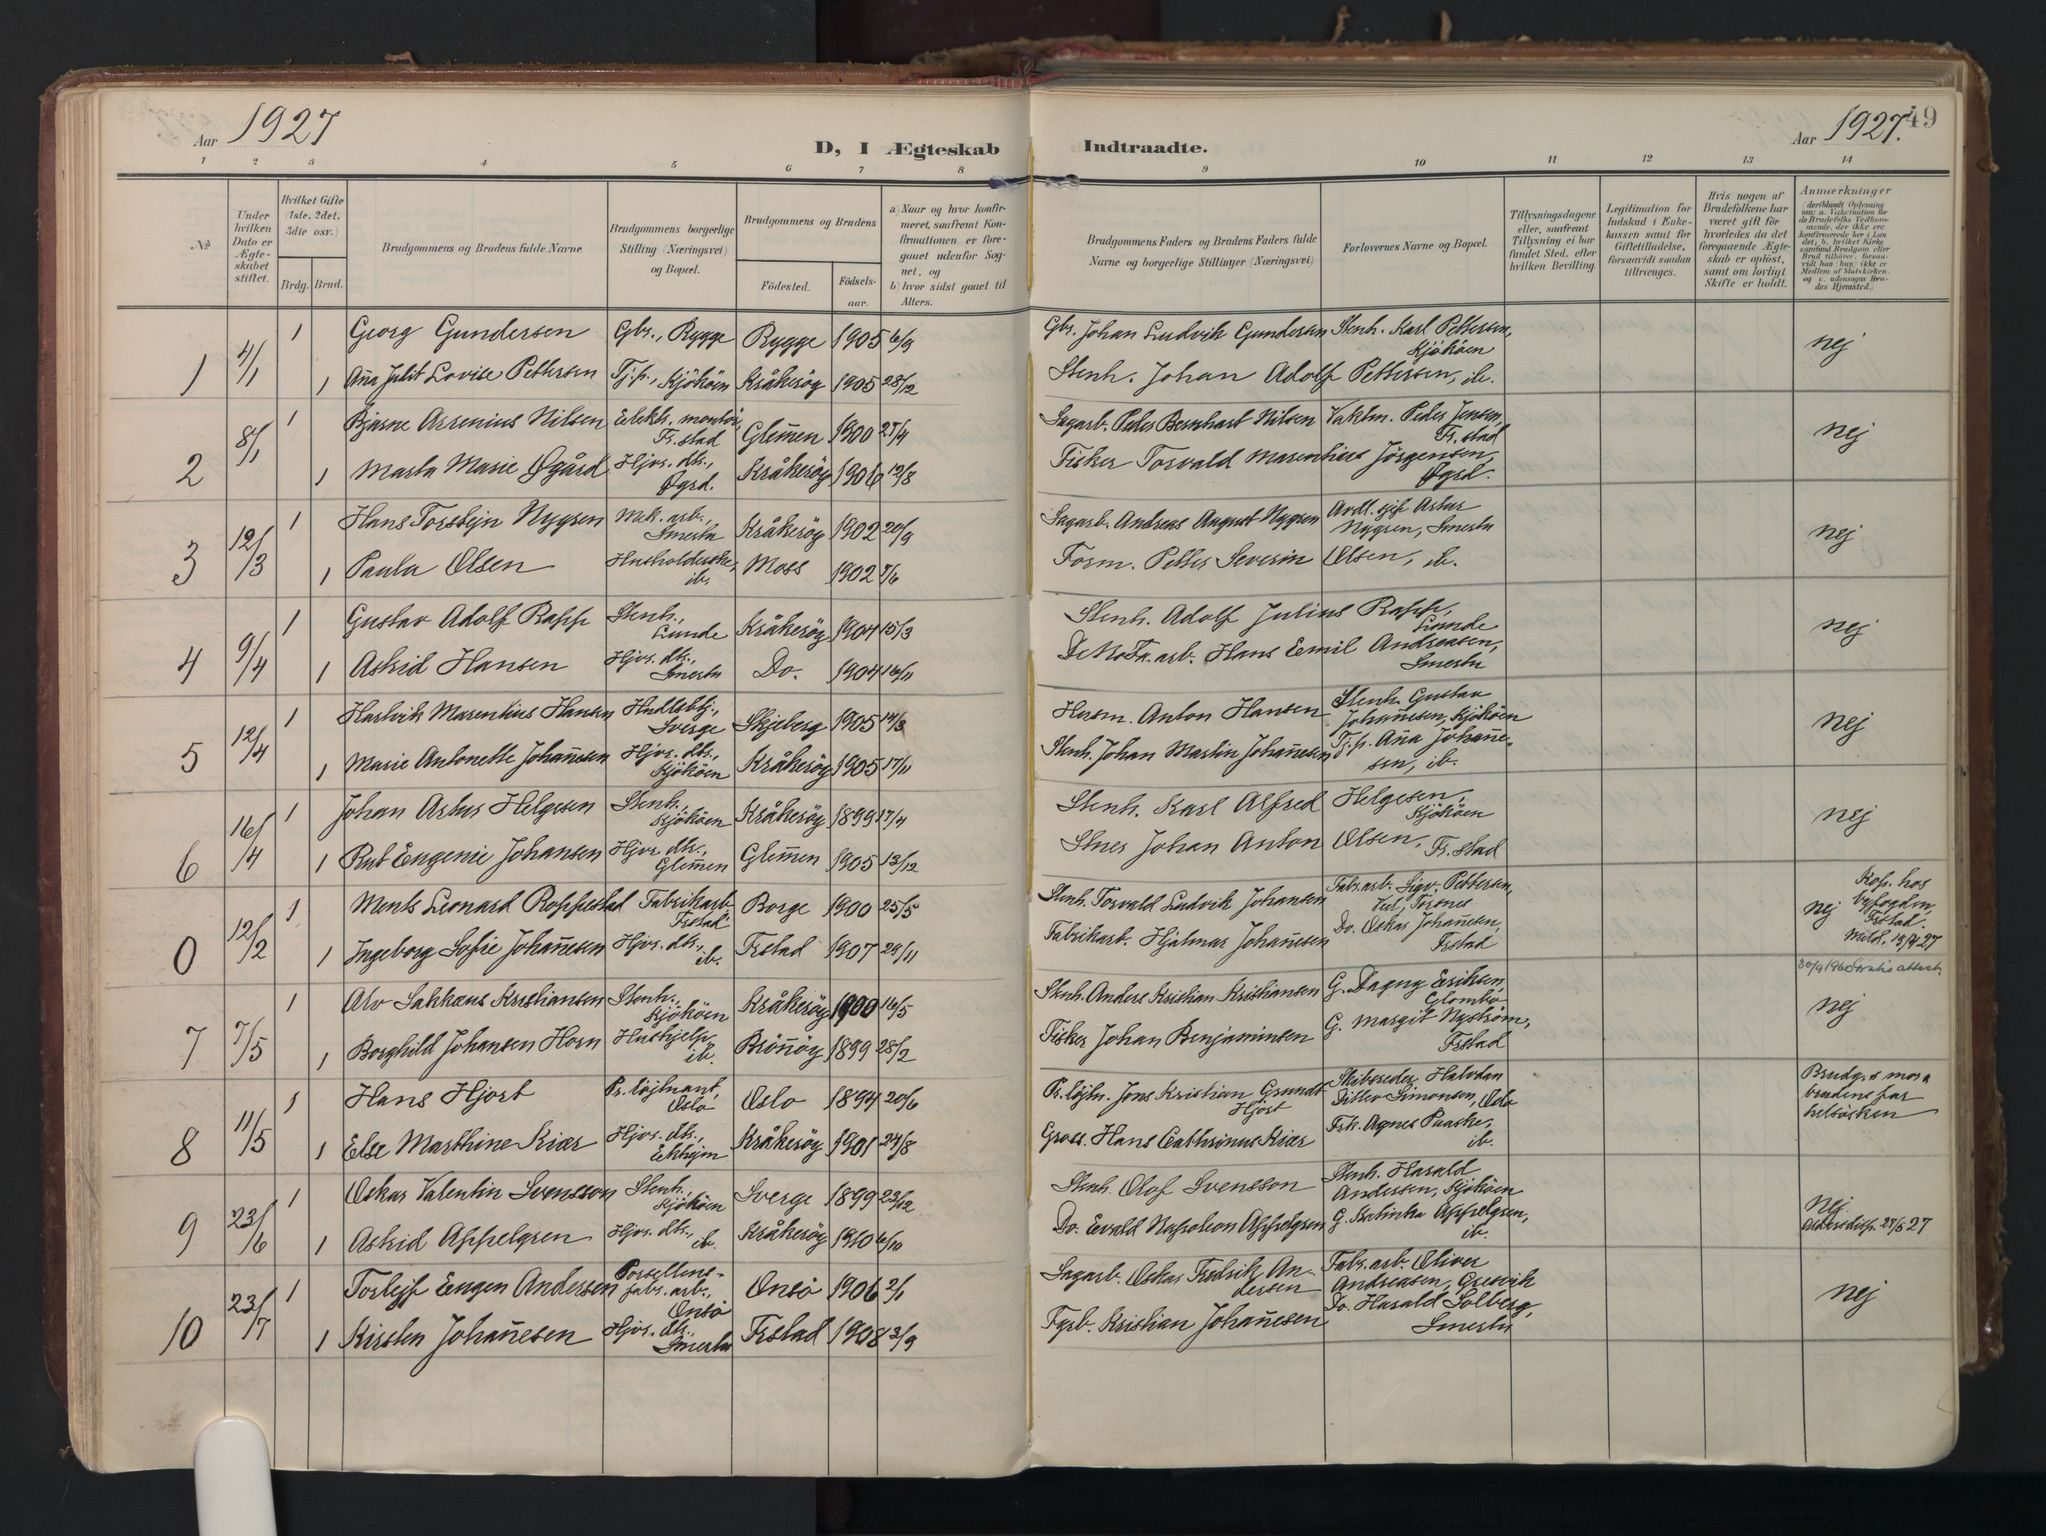 Aar 1927
D, I Ægteskab Indtraadte.
Aar 1927. 49
1 2 3 4 5 6 7 8 9 10 11 12 13 14
No
Under hvilken Dato er Ægteskabet stiftet.
Hvilket Gifte (1ste, 2det, 3die osv.)
Brdg. Brud.
Brudgommens og Brudens fulde Navne
Brudgommens borgerlige Stilling (Næringsvei) og Bopæl.
Brudgommens og Brudens
Fødested. Fødselsaar.
a) Naar og hvor konfirmeret, saafremt Konfirmationen er foregaaet udenfor Sognet, og
b) hvor sidst gaaet til Alters.
Brudgommens Faders og Brudens Faders fulde Navne og borgerlige Stillinger (Næringsvei)
Forlovernes Navne og Bopæl.
Tillysningsdagene eller, saafremt Tillysning ei har fundet Sted, efter hvilken Bevilling.
Legitimation for Indskud i Enkekassen samt for Giftetilladelse, forsaavidt saadan tiltrænges.
Hvis nogen af Brudefolkene har været gift før hvorledes da det foregaaende Ægteskab er opløst, samt om lovligt Skifte er holdt.
Anmærkninger (deriblandt Oplysning om: a. Vakcination for de Brudefolks Vedkommende, der ikke ere konfirmerede her i Landet; b. hvilket Kirkesamfund Brudgom eller Brud tilhører, forsaavidt han (hun) ikke er Medlem af Statskirken, og c. udensogns Brudes Hjemsted.)
1 4/1 1 Georg Gundersen Gbr., Rygge Rygge 1905 6/9 Gbr. Johan Ludvik Gundersen Stenh. Karl Pettersen, Kjøköen nej
1 Aña Julit Lovise Pettersen Tj.p., Kjøköen Kråkerøy 1905 28/12 Stenh. Johan Adolf Pettersen, ib.
2 8/1 1 Bjarne Arsenius Nilsen Elektr. montør, Fr.stad Glem̄en 1900 27/4 Sagarb. Peder Bernhart Nilsen Vaktm. Peder Jensen, Fr.stad nej
1 Marta Marie Øgård Hjvr. dtr., Øgrd. Kråkerøy 1906 12/8 Fisker Torvald Marentius Jörgensen, Øgrd.
3 12/3 1 Hans Torstejn Nygren Mek. arb., Smertu Kråkerøy 1902 20/9 Sagarb. Andreas August Nygren Artur Nygren, Smertu nej
1 Paula Olsen Husholderske, ib. Moss 1902 7/6 Form. Petter Severin Olsen, ib.
4 9/4 1 Gustav Adolf Rapp Stenh., Lunde Kråkerøy 1904 15/3 Stenh. Adolf Julius Rapp, Lunde nej
1 Astrid Hansen Hjvr. dtr., Smertu Do. 1904 16/11 DeNoFa. arb. Hans Emil Andreasen, Smertu
5 12/4 1 Hartvik Marentius Hansen Hndlsbtj., Sverge Skjeberg 1905 14/3 Husm. Anton Hansen Stenh. Gustav Johañesen, Kjøköen nej
1 Marie Antonette Johañesen Hjvr. dtr., Kjøköen Kråkerøy 1905 17/11 Stenh. Johan Martin Johañesen Tj.p. Aña Johañesen, ib.
6 16/4 1 Johan Artur Helgesen Stenh., Kjøköen Kråkerøy 1899 17/4 Stenh. Karl Alfred Helgesen, Kjøköen nej
1 Rut Eugenie Johansen Hjvr. dtr., Glem̄en Glem̄en 1905 13/12 Stuer Johan Anton Olsen, Fr.stad
0 12/2 1 Ments Leonard Roppestad Fabrikarb., Frstad Borge 1900 25/5 Stenh. Torvald Ludvik Johansen Fabr.arb. Sigv. Pettersen, Torsnes nej Kop. hos byfogden, Frstad.
1 Ingeborg Sofie Johañesen Hjvr. dtr., ib. Frstad 1907 29/11 Fabrikarb. Hjalmar Johañesen Do. Oskar Johañesen, Frstad
30/9 1960 Gratis attest.
7 7/5 1 Alv Sakkæus Kristiansen Stenh., Kjøköen Kråkerøy 1900 16/5 Stenh. Anders Kristian Kristiansen G. Dagny Eriksen, Glombo nej
1 Borghild Johansen Horn Hushjelp, ib. Brön̄öy 1899 28/2 Fisker Johan Benjaminsen G. Margit Nyström, Frstad
8 11/5 1 Hans Hjort Pr.løjtnant, Oslo Oslo 1894 20/6 Pr. løjtn. Jens Kristian Grundt Hjort Skibsreder Halvdan Ditlev Simonsen, Oslo Brudg.s mor o brudens far helsösken
1 Else Marthine Kiær Hjvr. dtr., Ekhejm Kråkerøy 1901 24/8 Gross. Hans Cathrinus Kiær Frk. Agnes Paaske, ib.
9 23/6 1 Oskar Valentin Svensson Stenh. Kjøköen Sverge 1899 23/12 Stenh. Olof Svensson Stenh. Harald Andersen, Kjøköen Nej.
1 Astrid Appelgren Hjvr. dtr., ib. Kråkerøy 1910 6/10 Do. Evald Napoleon Appelgren G. Katinka Appelgren, ib. Aldersdisp. 27/5 27
10 23/7 1 Torlejf Eugen Andersen Porsellensfabr.arb., Onsö Onsö 1906 2/1 Sagarb. Oskar Fredrik Andersen Fabr.arb. Oliver Andreasen, Gresvik nej
1 Kirsten Johañesen Hjvr. dtr., Smertu Frstad 1908 2/9 Fyrb. Kristian Johañesen Do. Harald Solberg, Smertu